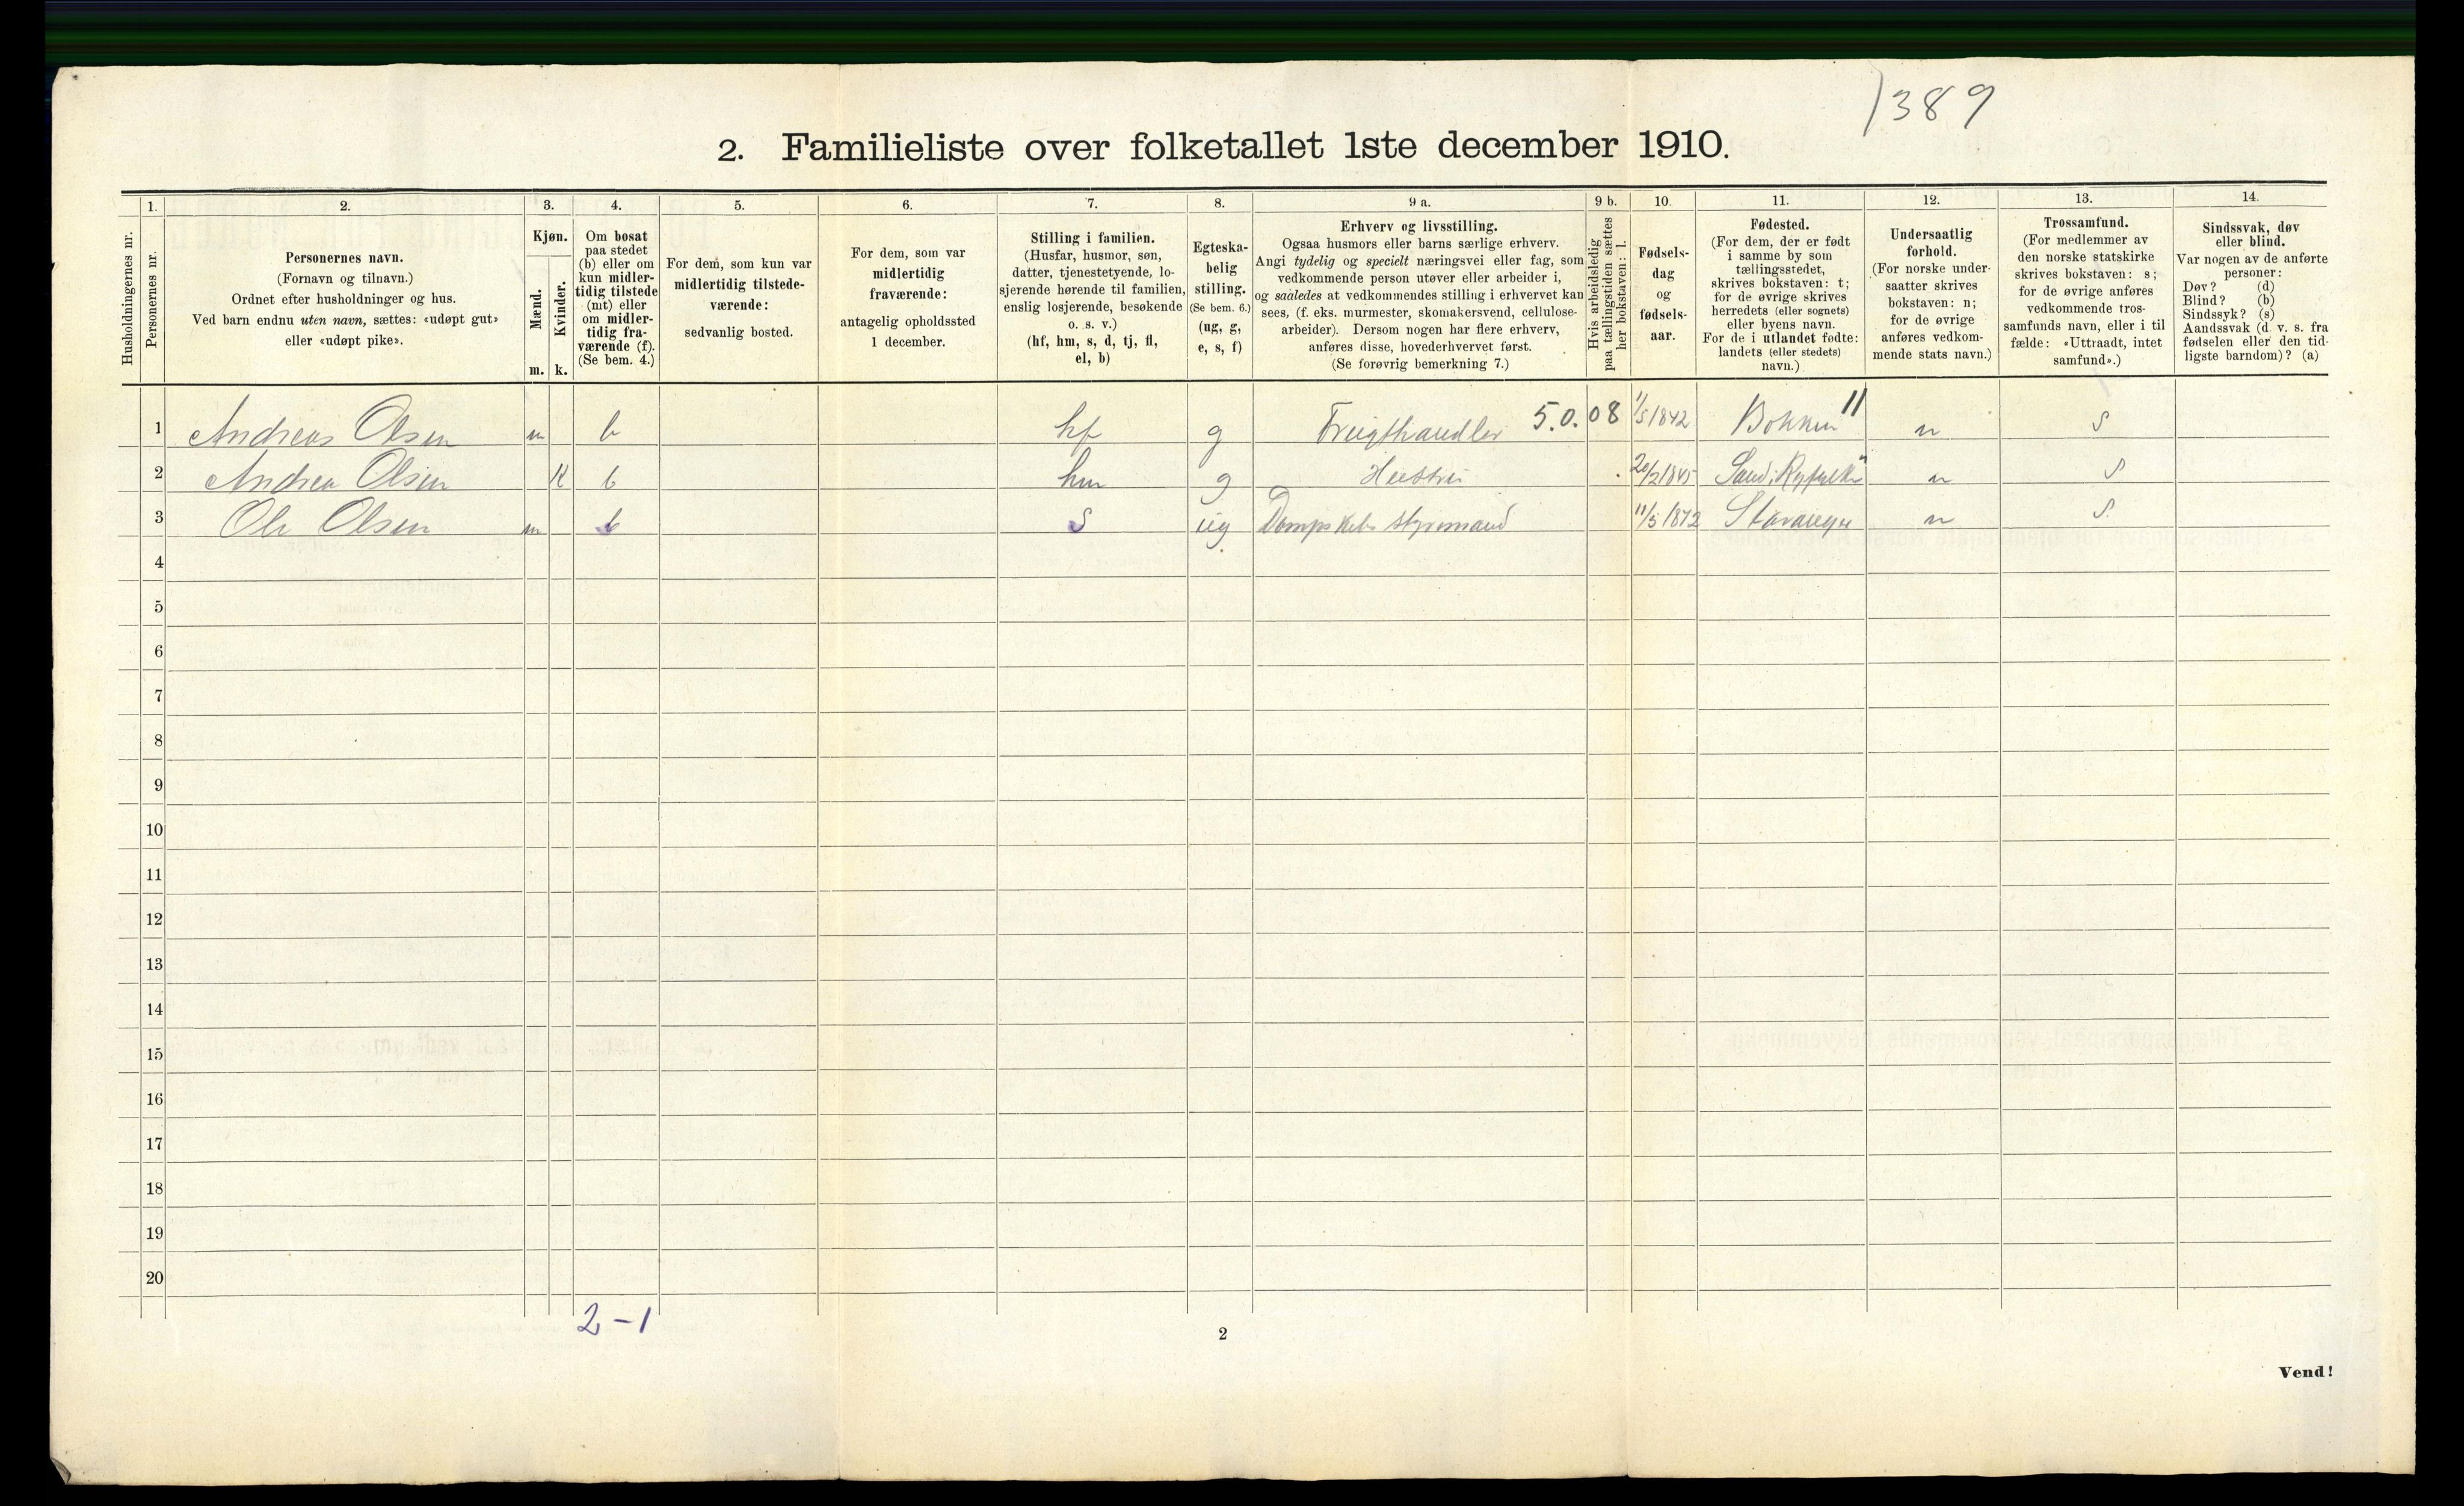 1389
2. Familieliste over folketallet 1ste december 1910.
Husholdningernes nr.
1.
Personernes nr.
2.
Personernes navn.
(Fornavn og tilnavn.)
Ordnet efter husholdninger og hus.
Ved barn endnu uten navn, sættes: «udøpt gut»
eller «udøpt pike».
3.
Kjøn.
Mænd.
Kvinder.
m. k.
4.
Om bosat
paa stedet
(b) eller om
kun midler-
tidig tilstede
(mt) eller
om midler-
tidig fra-
værende (f).
(Se bem. 4.)
5.
For dem, som kun var
midlertidig tilstede-
værende:
sedvanlig bosted.
6.
For dem, som var
midlertidig
fraværende:
antagelig opholdssted
1 december.
7.
Stilling i familien.
(Husfar, husmor, søn,
datter, tjenestetyende, lo-
sjerende hørende til familien,
enslig losjerende, besøkende
o. s. v.)
(hf, hm, s, d, tj, fl,
el, b)
8.
Egteska-
belig
stilling.
(Se bem. 6.)
(ug, g,
e, s, f)
9 a.
Erhverv og livsstilling.
Ogsaa husmors eller barns særlige erhverv.
Angi tydelig og specielt næringsvei eller fag, som
vedkommende person utøver eller arbeider i,
og saaledes at vedkommendes stilling i erhvervet kan
sees, (f. eks. murmester, skomakersvend, cellulose-
arbeider). Dersom nogen har flere erhverv,
anføres disse, hovederhvervet først.
(Se forøvrig bemerkning 7.)
9 b.
Hvis arbeidsledig
paa tællingstiden sættes
her bokstaven: l.
10.
Fødsels-
dag
og
fødsels-
aar.
11.
Fødested.
(For dem, der er født
i samme by som
tællingsstedet,
skrives bokstaven: t;
for de øvrige skrives
herredets (eller sognets)
eller byens navn.
For de i utlandet fødte:
landets (eller stedets)
navn.)
12.
Undersaatlig
forhold.
(For norske under-
saatter skrives
bokstaven: n;
for de øvrige
anføres vedkom-
mende stats navn.)
13.
Trossamfund.
(For medlemmer av
den norske statskirke
skrives bokstaven: s;
for de øvrige anføres
vedkommende tros-
samfunds navn, eller i til
fælde: «Uttraadt, intet
samfund».)
14.
Sindssvak, døv
eller blind.
Var nogen av de anførte
personer:
Døv? (d)
Blind? (b)
Sindssyk? (s)
Aandssvak (d. v. s. fra
fødselen eller den tid-
ligste barndom)? (a)
1 Andreas Olsen m b hf g Frugthandler 5.0.08 1/5 1842 Bokken 11 n s
2 Andrea Olsen K b hm g Hustru 20/2 1845 Sand i Ryfylke " n s
3 Ole Olsen m b s ug Dampskibs styrmand 11/5 1872 Stavanger n s
4
5
6
7
8
9
10
11
12
13
14
15
16
17
18
19
20
2-1
2
Vend!